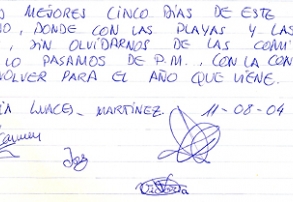 MEJORES CINCO DÍAS DE ESTE
, DONDE CON LAS PLAYAS Y LAS
, SIN OLVIDARNOS DE LAS COMI
LO PASAMOS DE P.M., CON LA CON
OLVER PARA EL AÑO QUE VIENE.
MARTÍNEZ. 11-08-04
Carmen